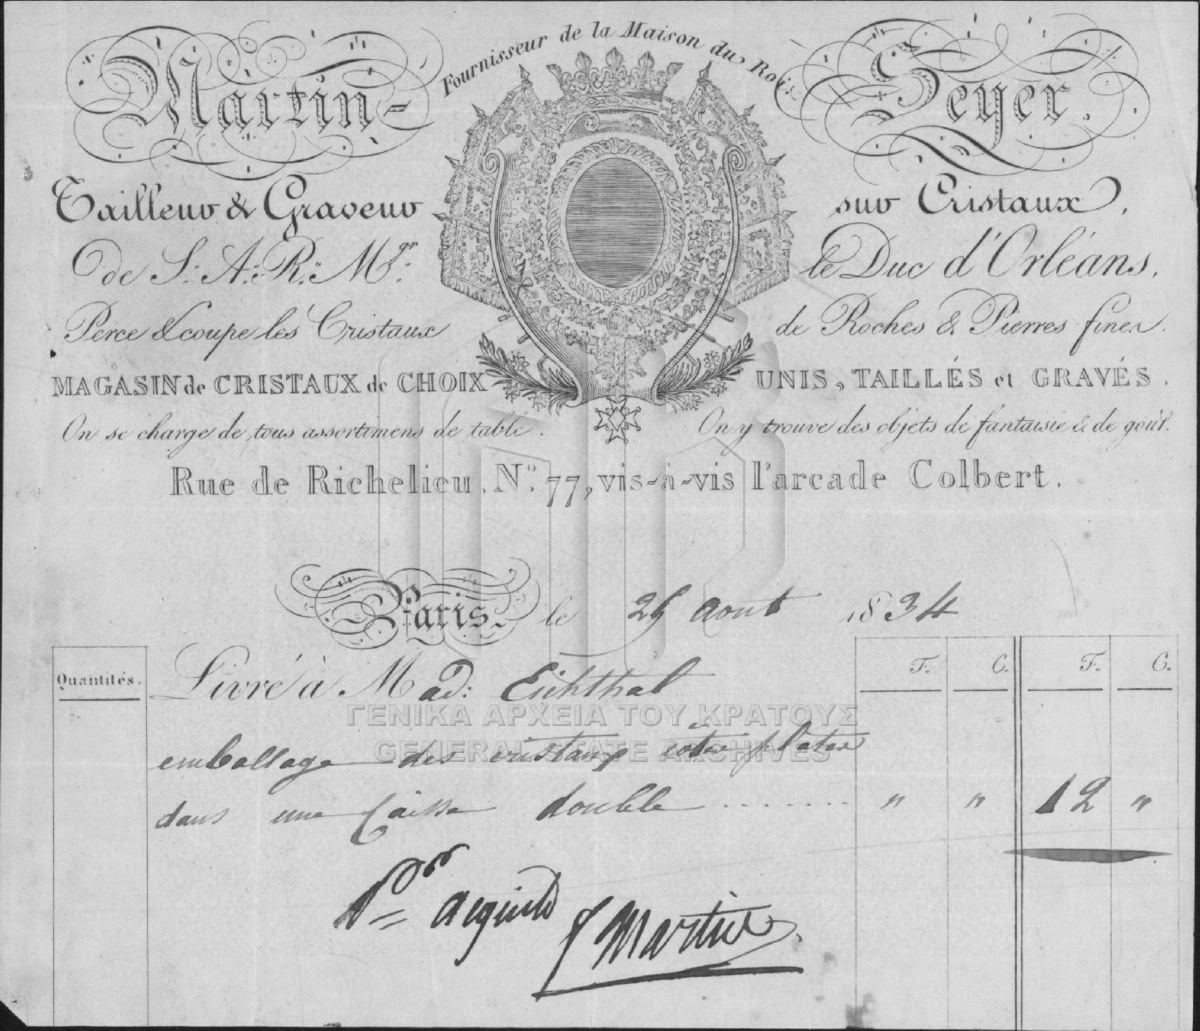 Fournisseur de la Maison du Roi
Martin-Seyer.
Tailleur & Graveur sur Cristaux,
de S. A. R. Mgr. le Duc d'Orléans,
Perce & coupe les Cristaux de Roches & Pierres fines.
MAGASIN de CRISTAUX de CHOIX UNIS, TAILLÉS et GRAVÉS.
On se charge de tous assortimens de table. On y trouve des objets de fantaisie & de goût.
Rue de Richelieu, No. 77, vis-à-vis l'arcade Colbert.
Paris, le Aout 1834
Quantités. F. C. F. C.
Livré à Mad: Eichthal
ΓΕΝΙΚΑ ΑΡΧΕΙΑ ΤΟΥ ΚΡΑΤΟΥΣ
GENERAL STATE ARCHIVES
emballage des cristaux
dans une Caisse double ........ " " 12 "
Pr acquit
Martin